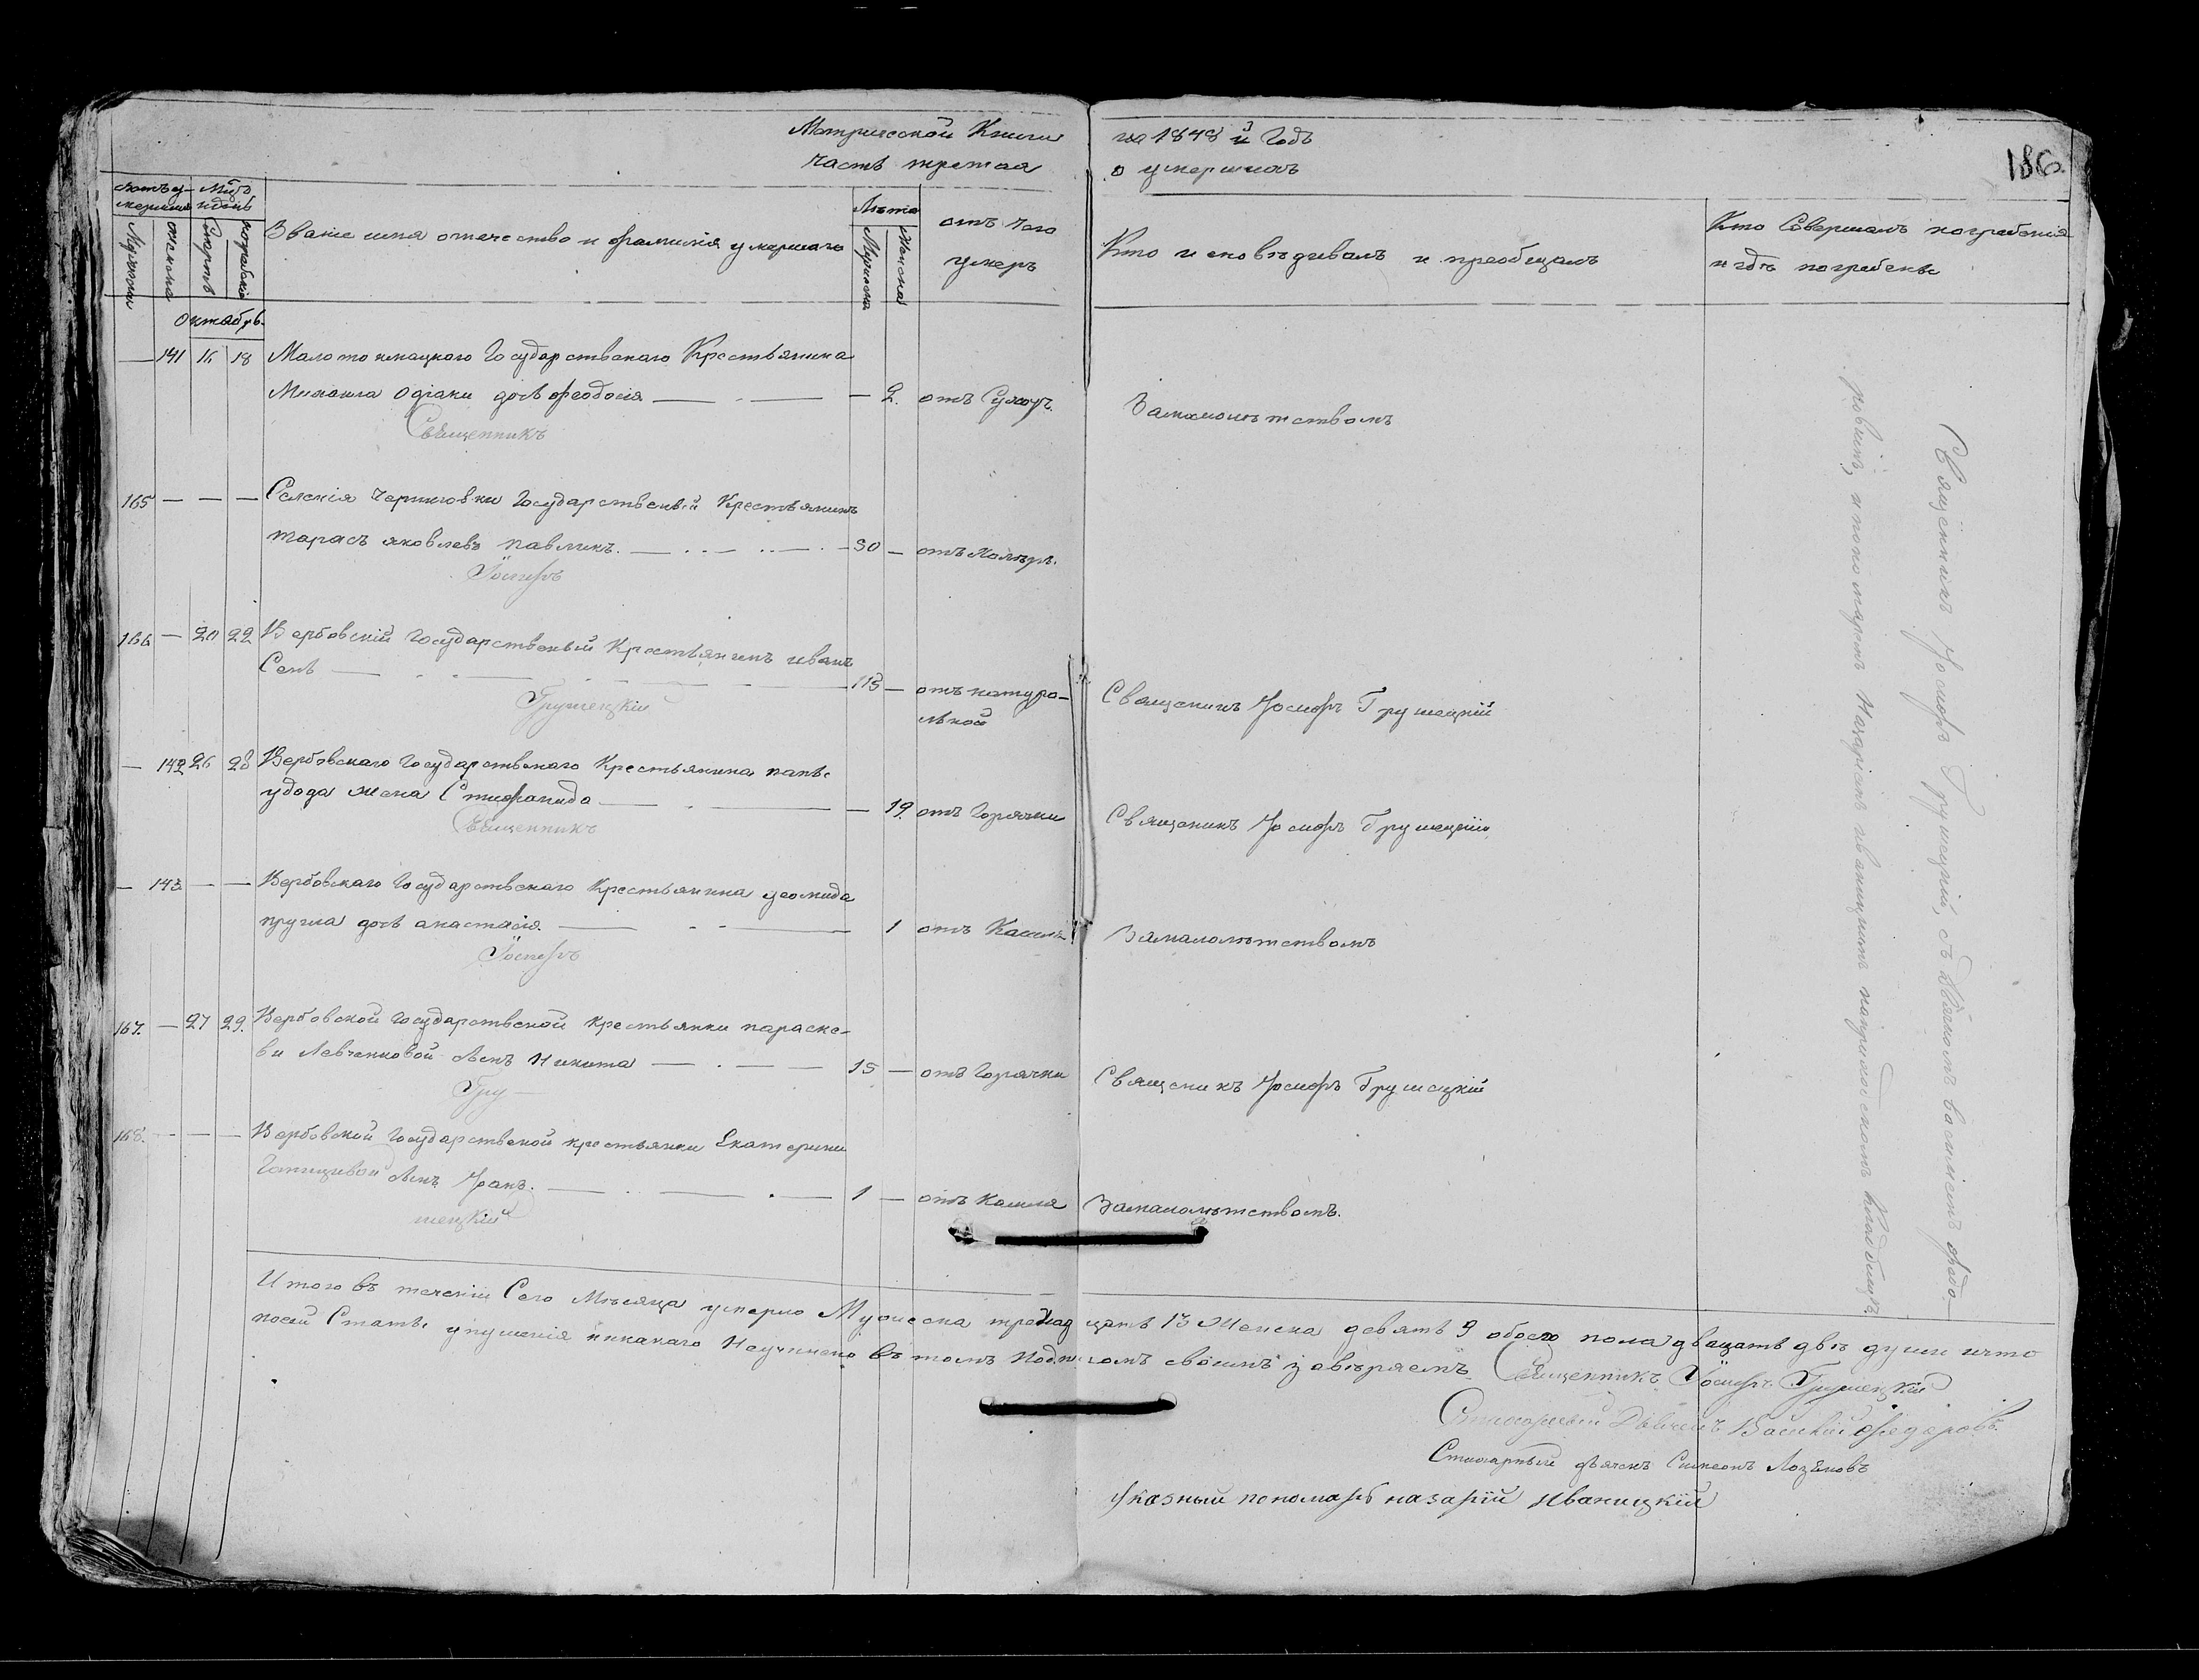 Метрической Книги на 1848 й Годъ
часть третая о умершихъ
186.
Счетъ умершихъ
Мужеска
Женска
Мцъ и день
Смерть
погребенія
Званіе имя отечество и фамилія умершаго
Лѣта
Мужеска
Женска
отъ Чего умеръ
Кто исповѣдывалъ и преобщалъ
Кто Совершалъ погребеніе и гдѣ погребены
Октябрь.
— 141 16 18 Малотокмацкого Государственаго Крестьянина
Михаила Одріаки дочь феодосія — — 2. отъ Сухот. Замалолѣтствомъ
Священникъ
165 — — — Селенія Черниговки Государственый Крестьянинъ
тарасъ яковлевъ павликъ. — 30 — отъ Холеры.
Іосифъ
166 — 20 22 Вербовскій Государственый Крестьянинъ иванъ
Сень — 113 — отъ натуральной Священикъ Іосифъ Грушецкій
Грушецкій
— 142 26 28 Вербовскаго Государственаго Крестьянина
удода жена Стефанида — — 19. отъ Горячки Священикъ Іосифъ Грушецкій
Священникъ
— 143 — — Вербовскаго Государственаго Крестьянина деомида
пругла дочь анастасія. — 1 отъ Кашля Замалолѣтствомъ
Іосифъ
167. — 27 29. Вербовской Государственой крестьянки параске-
ви Левченковой сынъ Никита — 15 — отъ Горячки Священикъ Іосифъ Грушецкій
Гру—
168. — — — Вербовской Государственой крестьянки Екатерини
сынъ — 1 — отъ Кашля Замалолѣтствомъ.
шецкій
Священникъ Іосифъ Грушецкій, съ Дьячкомъ Василіемъ Федо-
ровимъ, и пономаремъ Назаріемъ Иваницкимъ наприходскомъ Кладбищѣ.
Итого въ теченіи Сего Мѣсяца умерло Мужеска тренадцать 13 Женска девять 9 обоего пола двацать двѣ души ичто
посей Статьи упушенія никакаго Неучинено въ томъ Подписомъ своимъ завѣряемъ Священникъ Іосифъ Грушецкій
Стихарный Дьячекъ Василій Федоровъ.
Стихарный дьячекъ Симеонъ
Указный пономарь назарій Иваницкій